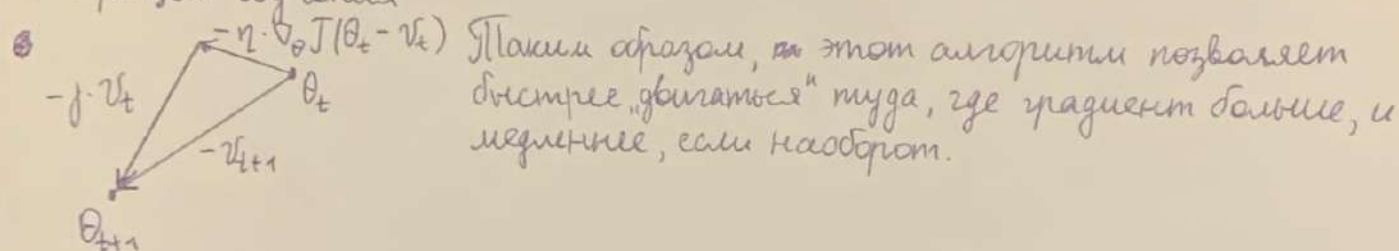 -η·∇_θ J(θ_t - v_t) Таким образом, этот алгоритм позволяет
-γ·v_t θ_t быстрее „двигаться" туда, где градиент больше, и
-v_{t+1} медленнее, если наоборот.
θ_{t+1}